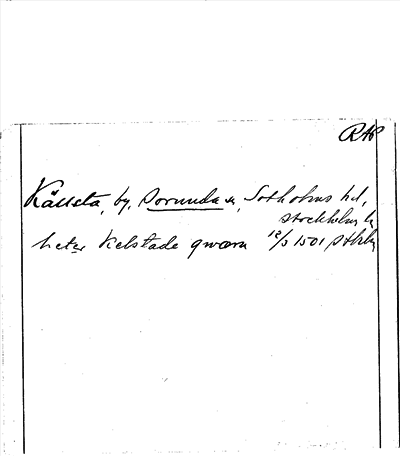 RAP
Källsta, by, Sorunda sn, Sotholms hd,
Stockholms l.
heter Kelstade qwærn 12/3 1501 Sthlm